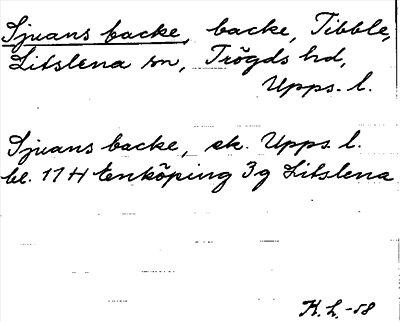 Sjuans backe, backe, Tibble,
Litslena sn, Trögds hd,
Upps. l.
Sjuans backe, ek. Upps. l.
bl. 11 H Enköping 3g Litslena
K. L. -58